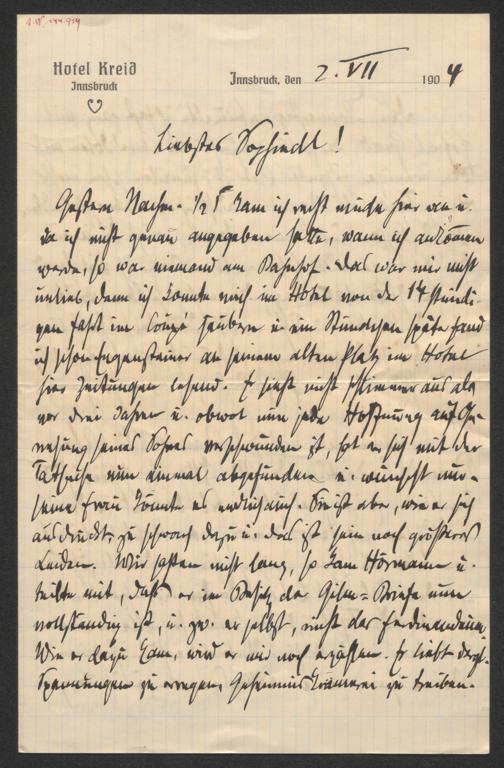 Hotel Kreid
Innsbruck
Innsbruck, den 2. VII 1904
Liebstes Sophiedl!
Gestern Nachm. ½ 5 kam ich recht müde hier an u.
da ich nicht genau angegeben hatte, wann ich ankommen
werde, so war niemand am Bahnhof. Das war mir nicht
unlieb, denn ich konnte mich im Hôtel von der 14 stündi-
gen Fahrt im Coupé säubern u. ein Stündchen später fand
ich schon Ergensteiner an seinem alten Platz im Hotel
hier Zeitungen lesend. Er sieht nicht schlimmer aus als
vor drei Jahren u. obwol nun jede Hoffnung auf Ge-
nesung seines Sohnes verschwunden ist, hat er sich mit der
Tatsache nun einmal abgefunden u. wünscht nur
seine Frau könnte es endlich auch. Sie ist aber, wie er sich
ausdrückt, zu schwach dazu u. das ist sein noch größeres
Leiden. Wir saßen nicht lang, so kam Hörmann u.
teilte mit, daß er im Besitz der Gilm=Briefe nun
vollständig ist, u. zw. er selbst, nicht das Ferdinandeum.
Wie er dazu kam, wird er mir noch erzählen. Er liebt dergl.
Spannungen zu erregen, Geheimnis Krämerei zu treiben.